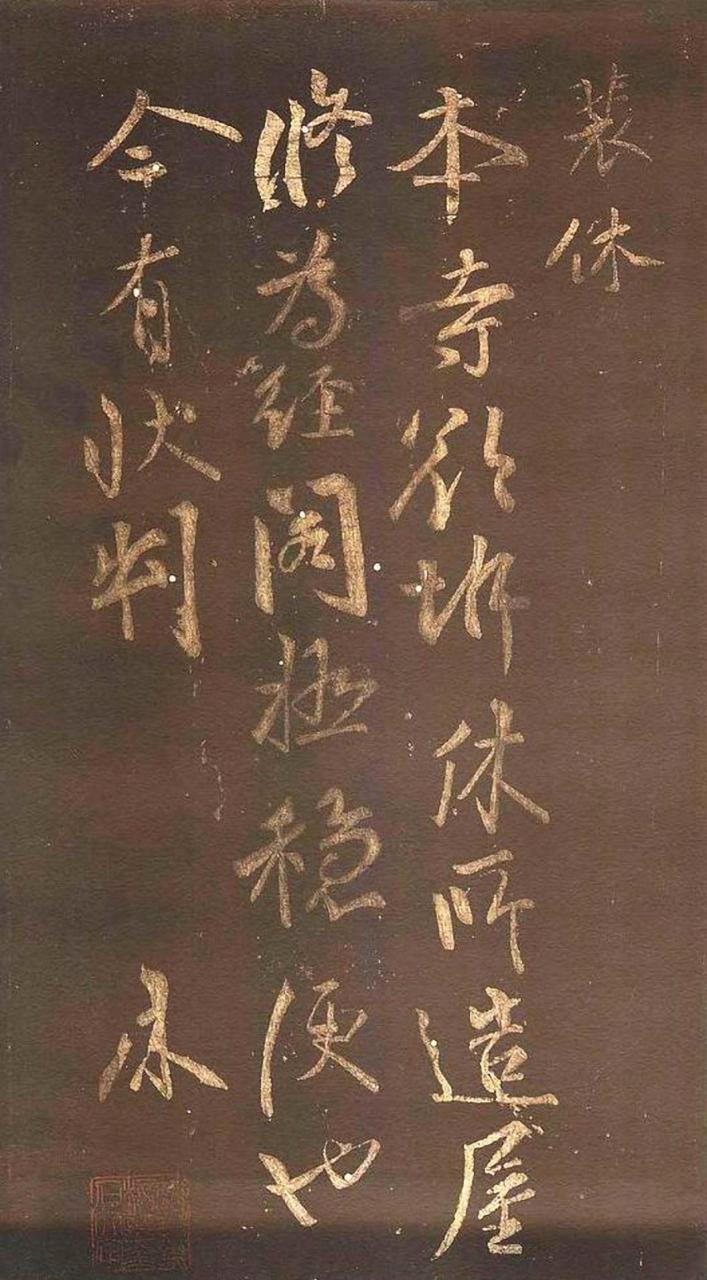 裴休
本寺欲坼休所造屋
脩為經閣極穩便也
今有狀判 休